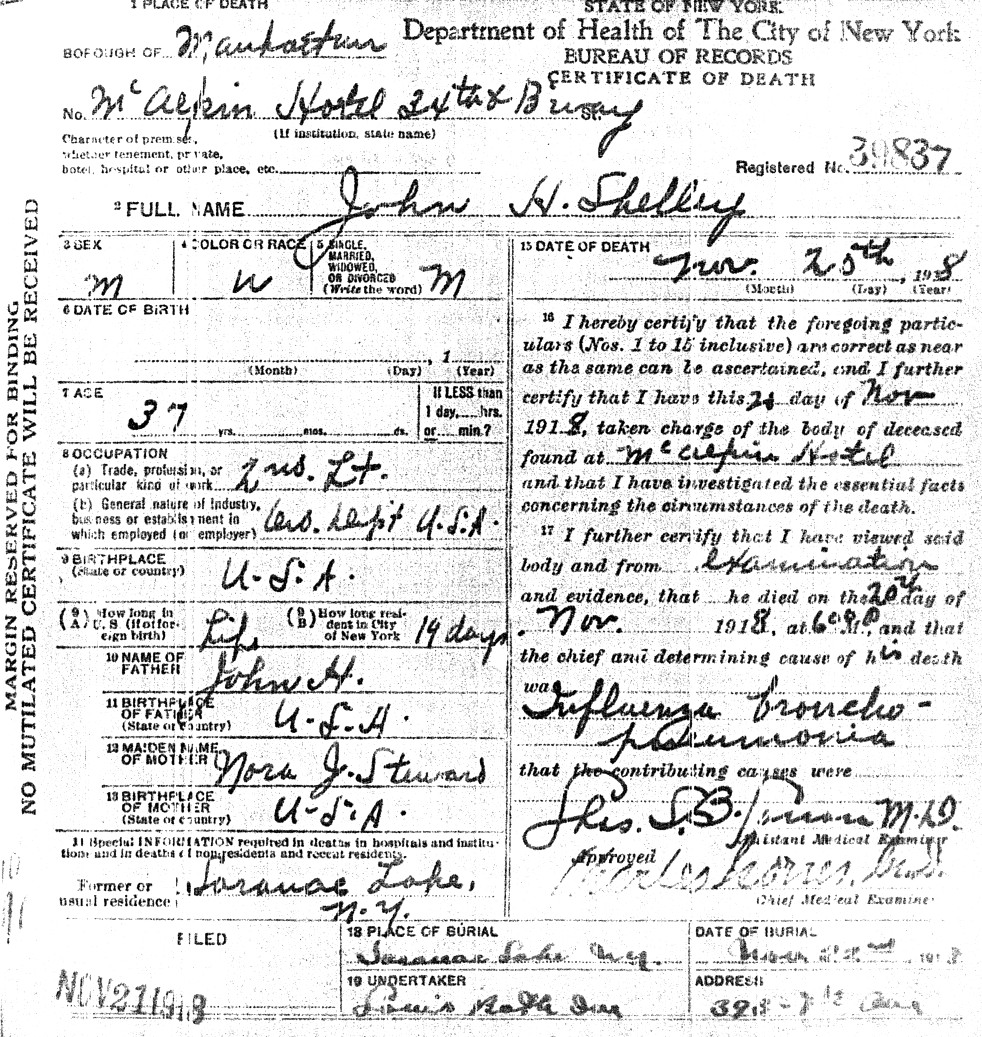 1 PLACE OF DEATH
STATE OF NEW YORK
Department of Health of The City of New York
BUREAU OF RECORDS
CERTIFICATE OF DEATH
BOROUGH OF Manhattan
No. McAlpin Hotel 34th & Bway St.
Character of premises, (If institution, state name)
whether tenement, private,
hotel, hospital or other place, etc.
Registered No. 39837
2 FULL NAME John H. Shelley
3 SEX M
4 COLOR OR RACE W
5 SINGLE,
MARRIED,
WIDOWED,
OR DIVORCED
(Write the word) M
6 DATE OF BIRTH
, 1
(Month) (Day) (Year)
7 AGE
37 yrs. mos. ds.
If LESS than
1 day, hrs.
or min.?
8 OCCUPATION
(a) Trade, profession, or
particular kind of work 2nd. Lt.
(b) General nature of industry,
business or establishment in
which employed (or employer) Dept U.S.A
9 BIRTHPLACE
(State or country) U-S-A.
(9 A) How long in
U. S. (if of for-
eign birth) Life
(9 B) How long resi-
dent in City
of New York 19 days.
10 NAME OF
FATHER John H.
11 BIRTHPLACE
OF FATHER
(State or country) U-S-A.
12 MAIDEN NAME
OF MOTHER Nora J. Steward
13 BIRTHPLACE
OF MOTHER
(State or country) U-S-A.
14 Special INFORMATION required in deaths in hospitals and institu-
tions and in deaths of nonresidents and recent residents.
Former or
usual residence Saranac Lake,
N.Y.
15 DATE OF DEATH
Nov. 20th, 1918
(Month) (Day) (Year)
16 I hereby certify that the foregoing partic-
ulars (Nos. 1 to 15 inclusive) are correct as near
as the same can be ascertained, and I further
certify that I have this 21 day of Nov
1918, taken charge of the body of deceased
found at McAlpin Hotel
and that I have investigated the essential facts
concerning the circumstances of the death.
17 I further certify that I have viewed said
body and from examination
and evidence, that he died on the 20th day of
Nov. 1918, at M., and that
the chief and determining cause of his death
was
Influenza broncho-
pneumonia
that the contributing causes were
M.D.
Assistant Medical Examiner
Approved
Charles Norris, M.D.
Chief Medical Examiner
MARGIN RESERVED FOR BINDING
NO MUTILATED CERTIFICATE WILL BE RECEIVED
FILED
NOV 27 1918
18 PLACE OF BURIAL
Saranac Lake N.Y.
DATE OF BURIAL
Nov 22nd 1918
19 UNDERTAKER
Louis
ADDRESS
Ave